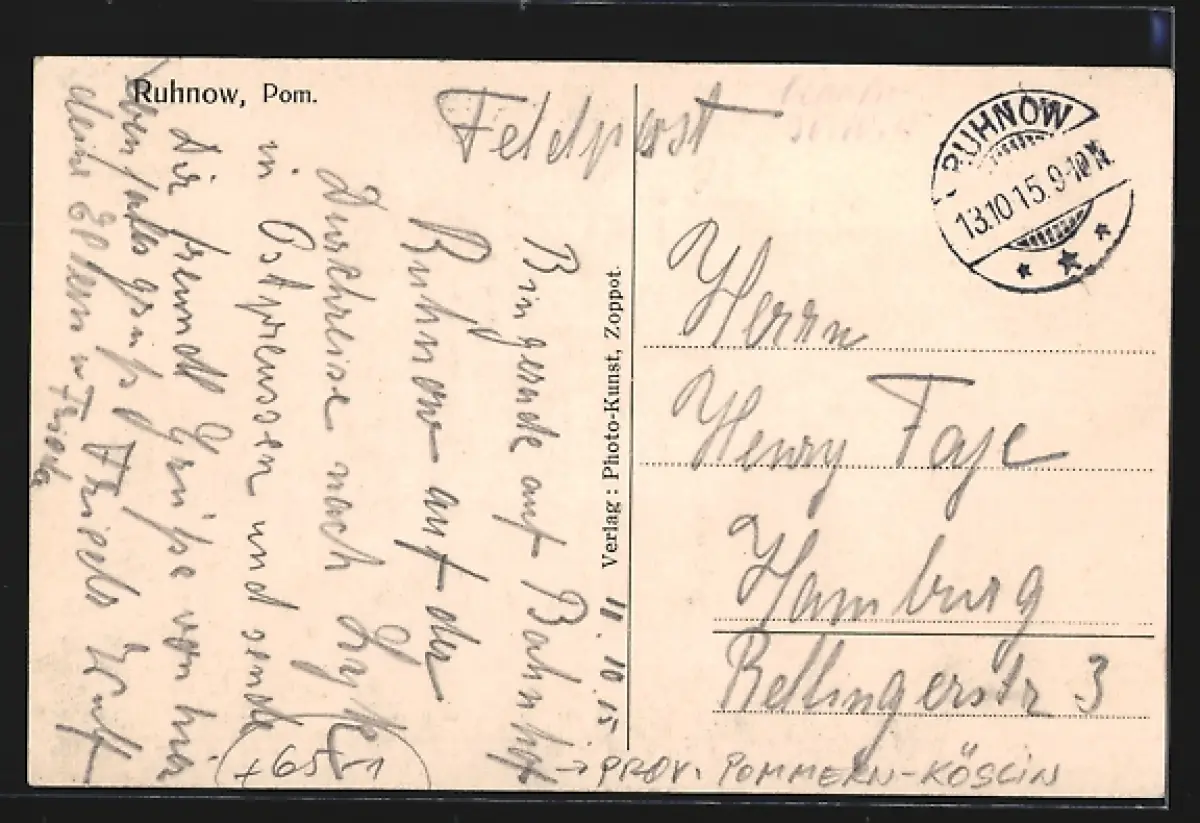 Ruhnow, Pom.
Feldpost
RUHNOW
13.10.15.9-10
11.10.15
Bin gerade auf Bahnhof
Ruhnow auf der
Durchreise nach Lyk
in Ostpreussen und sende
Dir freundl Grüße von hier
Ebenfalls grüße
deine Eltern u Frieda
Verlag: Photo-Kunst, Zoppot.
Herrn
Henry Faje
Hamburg
Bellingerstr 3
+6551
→ PROV. POMMERN-KÖSLIN